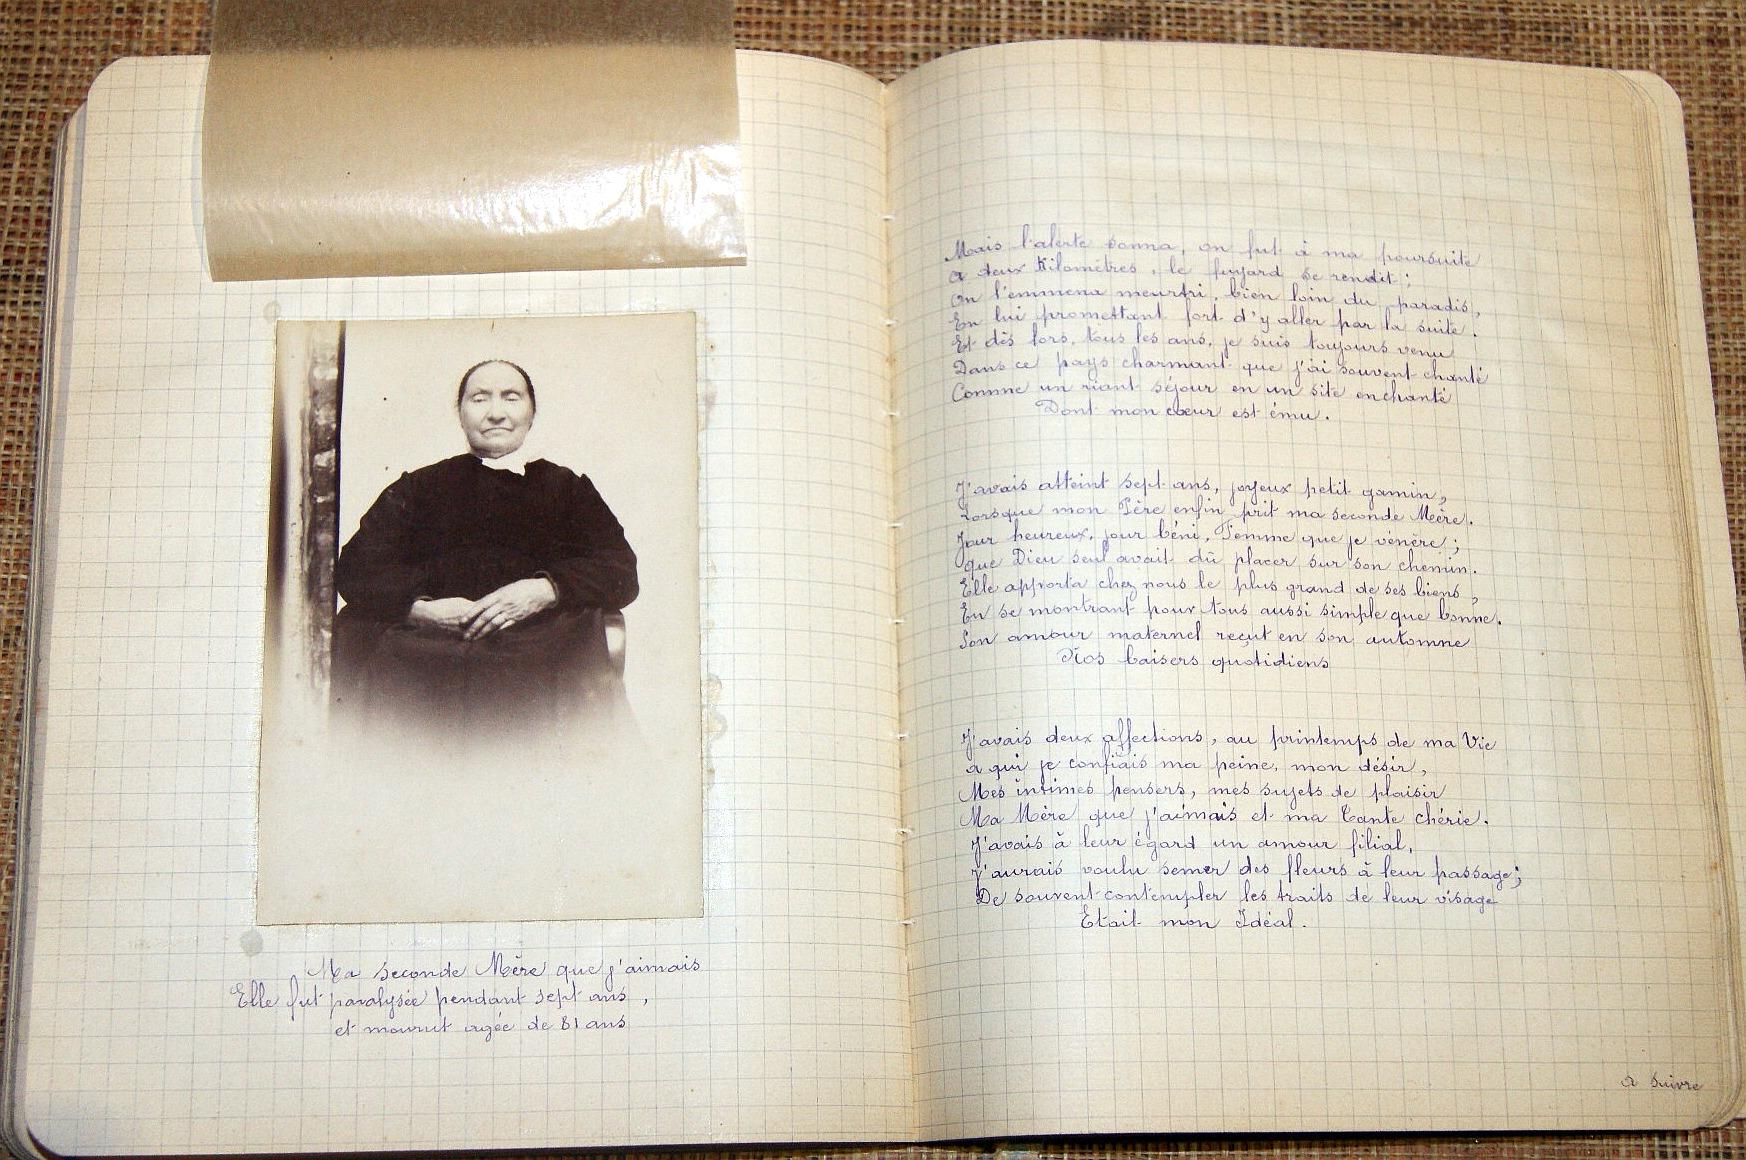 Ma seconde Mère que j'aimais
Elle fut paralysée pendant sept ans,
et mourut agée de 81 ans
Mais l'alerte sonna, on fut à ma poursuite
a deux Kilomètres, le fuyard se rendit ;
On l'emmena meurtri, bien loin du paradis,
En lui promettant fort d'y aller par la suite.
Et dès lors, tous les ans, je suis toujours venu
Dans ce pays charmant que j'ai souvent chanté
Comme un riant séjour en un site enchanté
Dont mon cœur est ému.
J'avais atteint sept ans, joyeux petit gamin,
Lorsque mon Père enfin prit ma seconde Mère.
Jour heureux, jour béni, Femme que je vénère ;
que Dieu seul avait dû placer sur son chemin.
Elle apporta chez nous le plus grand de ses biens,
En se montrant pour tous aussi simple que bonne.
Son amour maternel reçut en son automne
Nos baisers quotidiens
J'avais deux affections, au printemps de ma Vie
a qui je confiais ma peine, mon désir,
Mes intimes pensers, mes sujets de plaisir
Ma Mère que j'aimais et ma Tante chérie.
J'avais à leur égard un amour filial,
J'aurais voulu semer des fleurs à leur passage ;
De souvent contempler les traits de leur visage
Etait mon Idéal.
a suivre